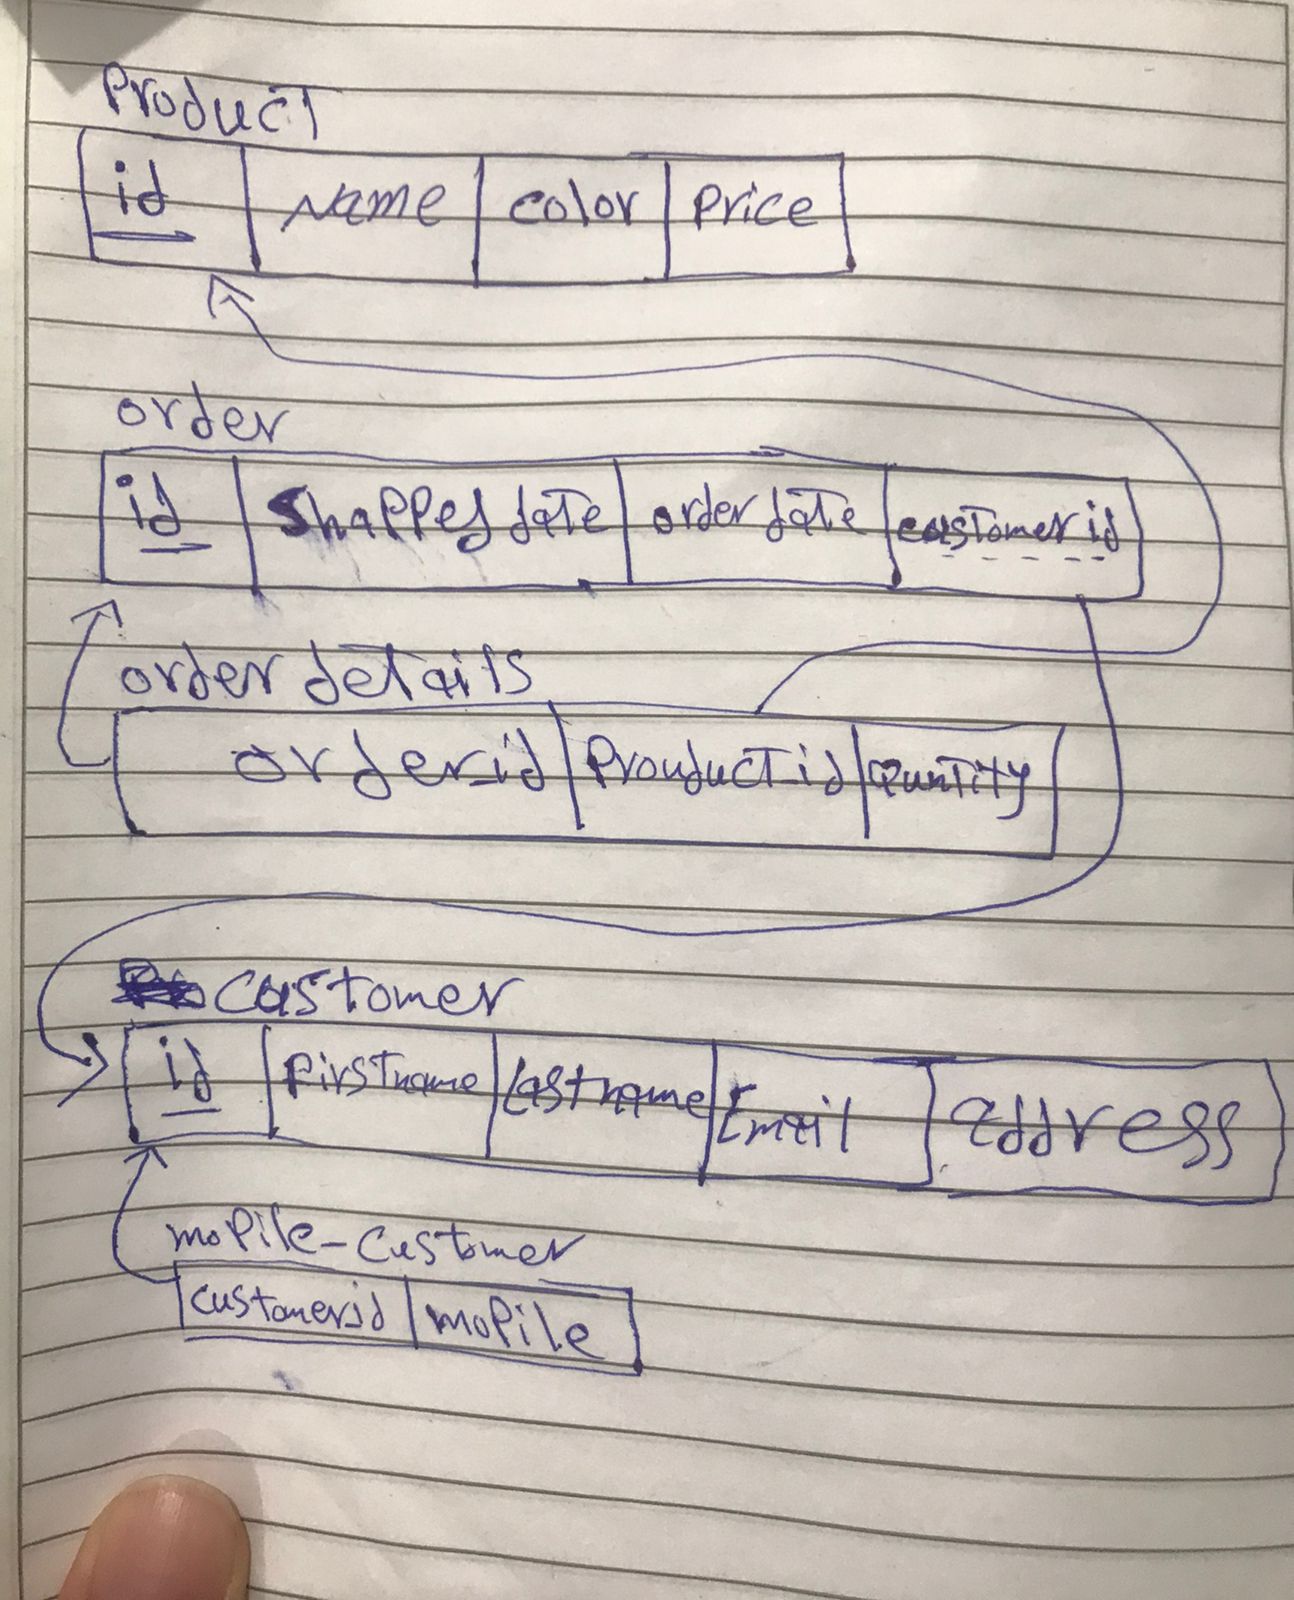 Product
id Name color Price
order
id Shapped date order date customer id
order details
order_id Prouduct_id Quntity
Customer
id Firstname Lastname Email address
moPile-Customer
customer_id moPile